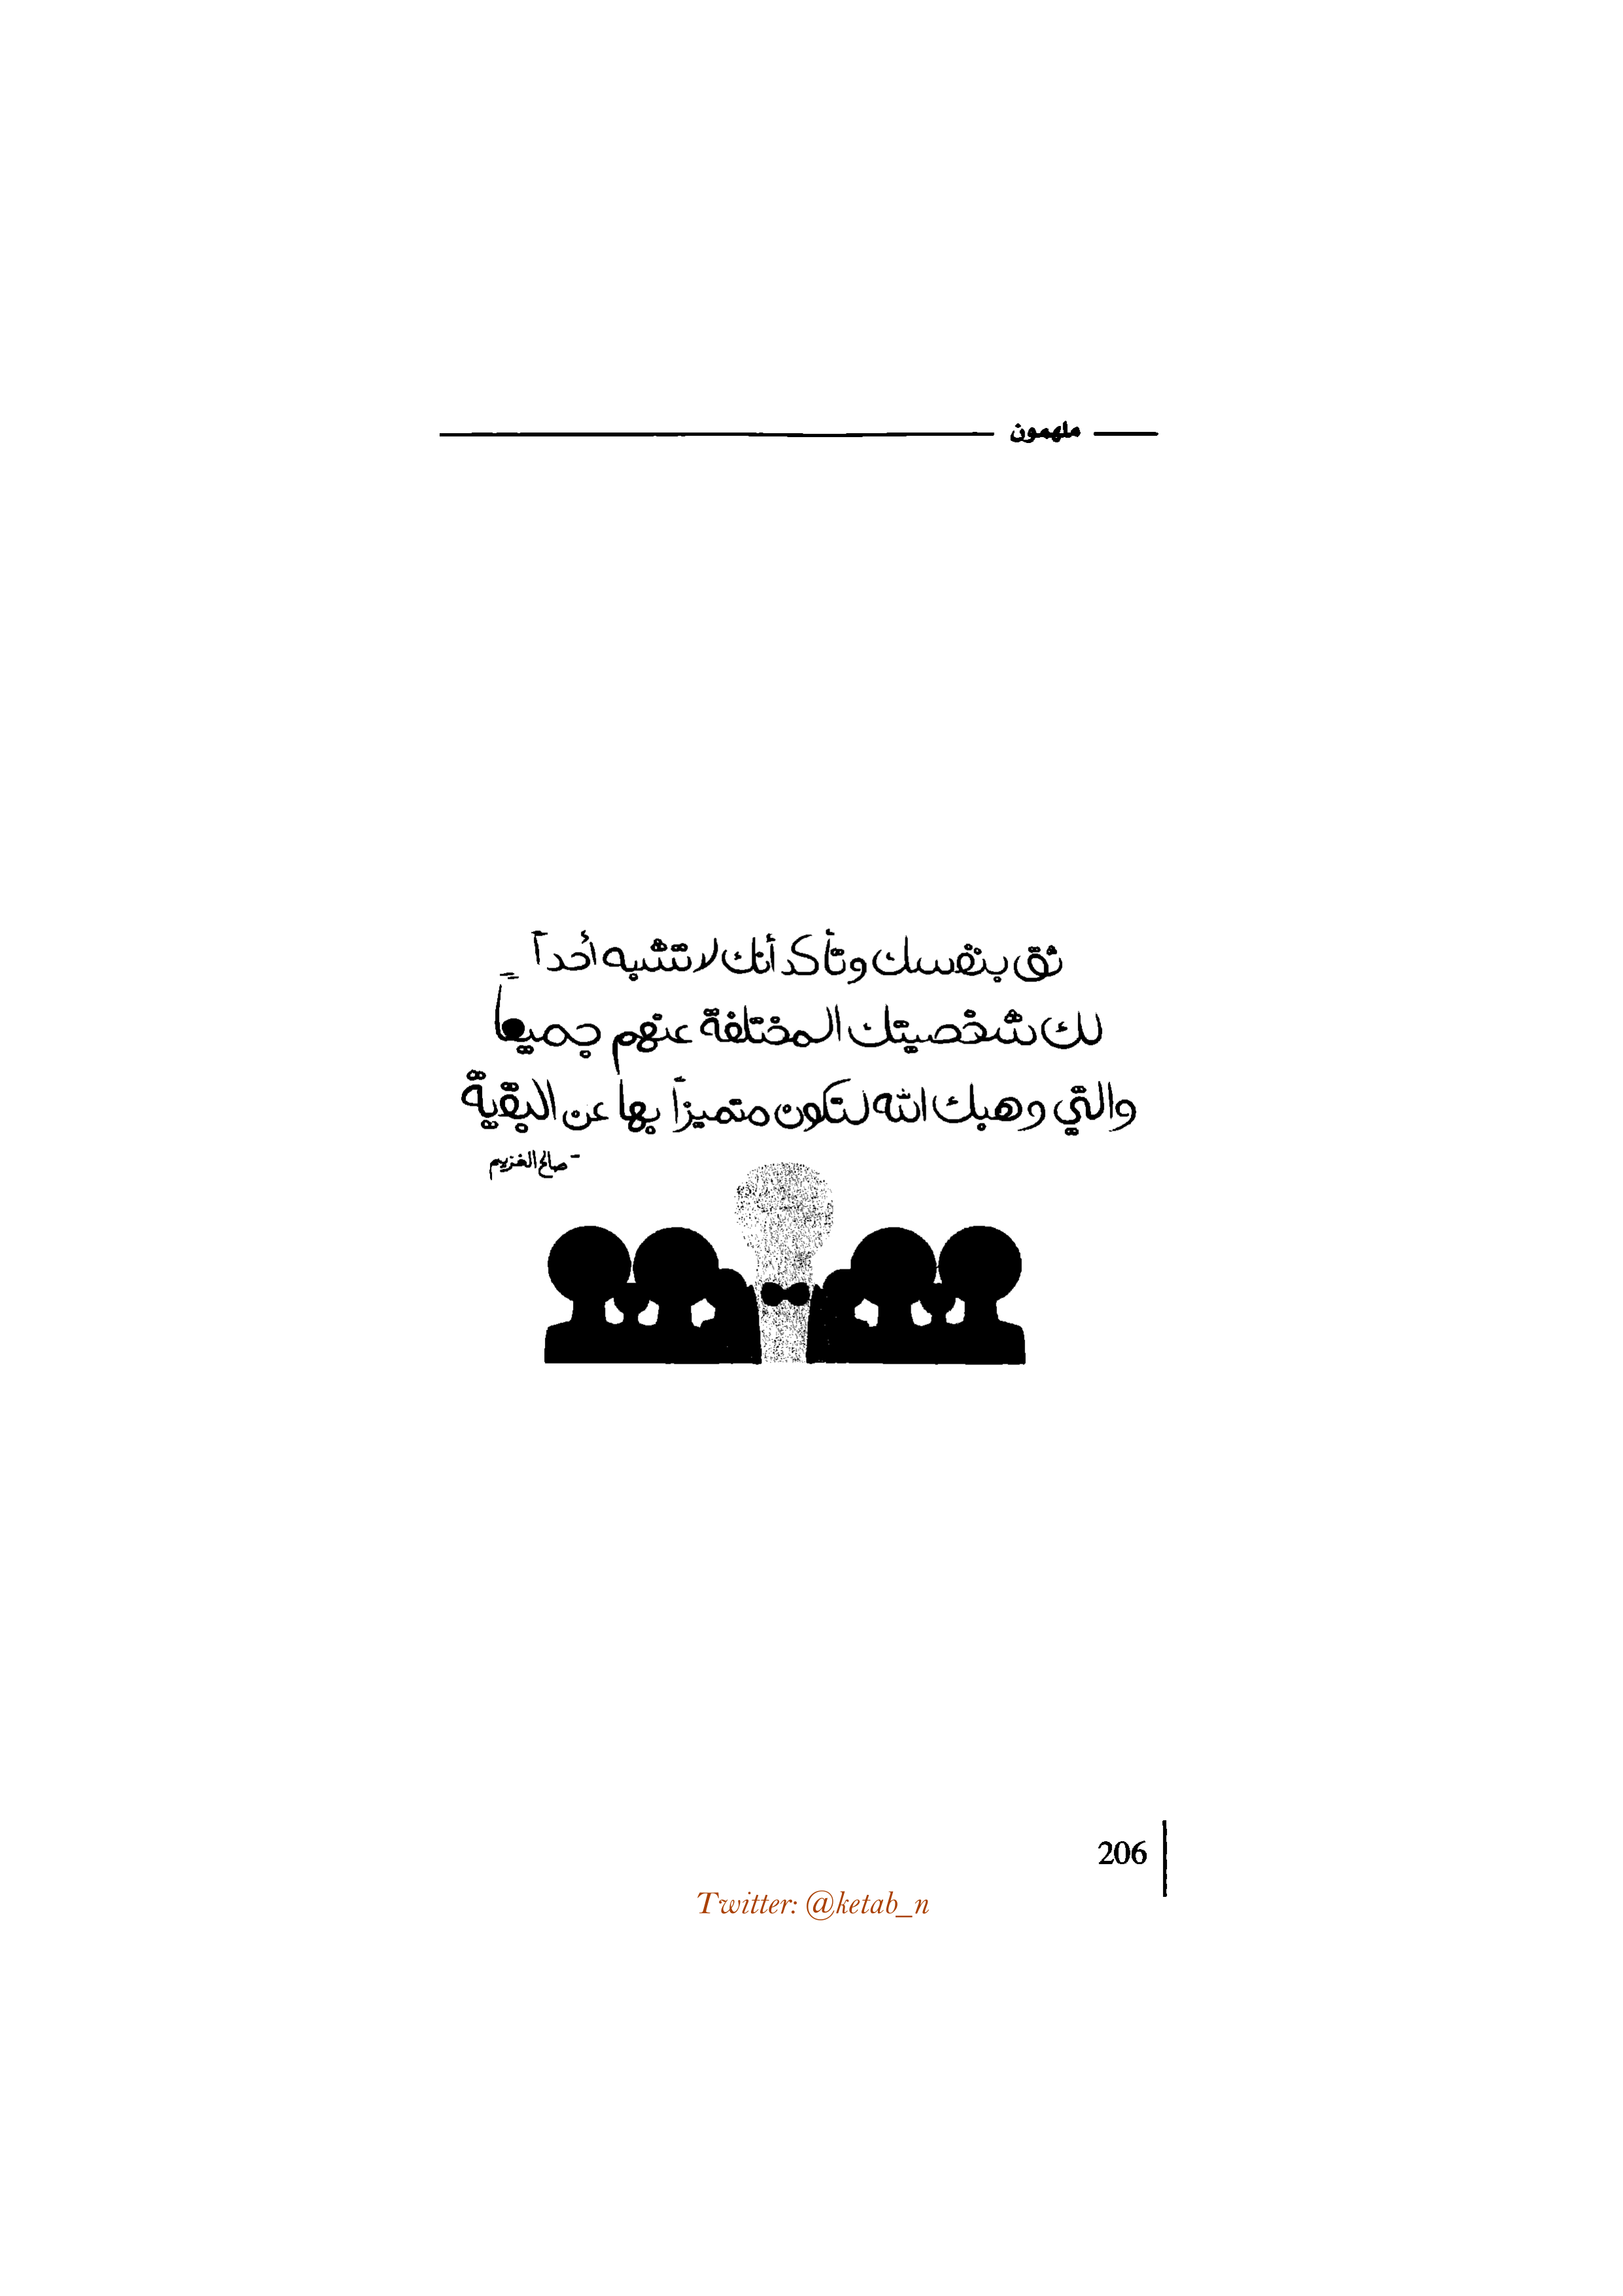 ملهمون
ثق بنفسك وتأكد أنك لا تشبه أحداً
لك شخصيتك المختلفة عنهم جميعاً
والتي وهبك الله لتكون متميزاً بها عن البقية
- صالح الغزييم
206
Twitter: @ketab_n